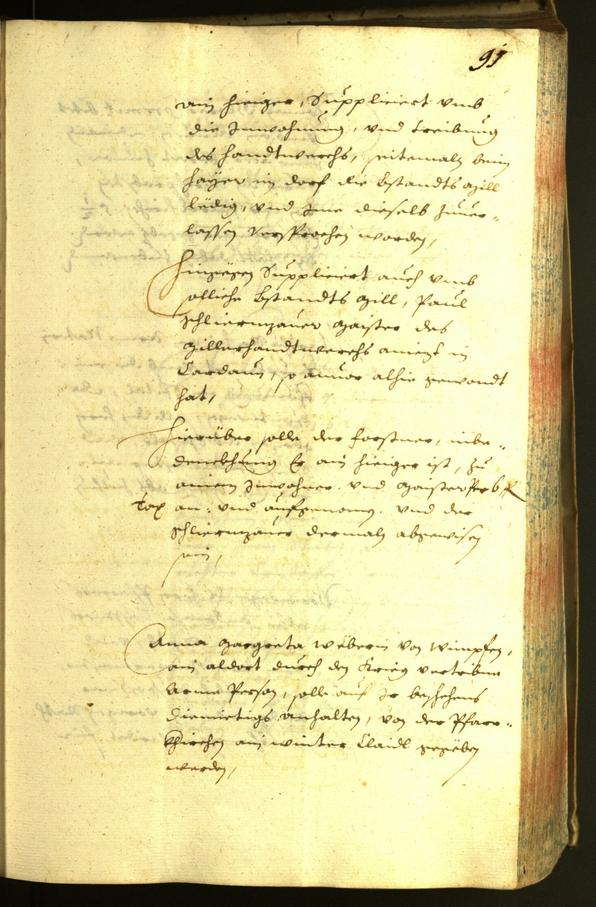 91
ain hieiger, Suppliciert vmb
die Inwohnung, vnd treibung
des handtwerchs, seitemaln beim
Hayer im dorf die bstandts Mill
ledig, vnd Ime dieselb zuuer-
lassen versprochen worden,
Hingegen Suppliciert auch vmb
solliche bstandts Mill, Paul
Schliernzauer Maister des
Millerhandtwerchs aniezt in
Cardaun, so anuor alhie gewondt
hat,
Hierüber solle der Forstner, inbe-
denckhung Er ain hieiger ist, zu
ainem Inwohner, vnd Maister
Tax an: vnd aufgenomen, vnd der
Schliernzauer dermaln abgewisen
sein,
Anna Margreta Weberin von Wimpfen,
ain aldort durch den Krieg vertribne
Arme Person, solle auf Ir beschehens
diemietigs anhalten, von der Pfarr-
khirchen ain winter Claidl gegeben
werden,